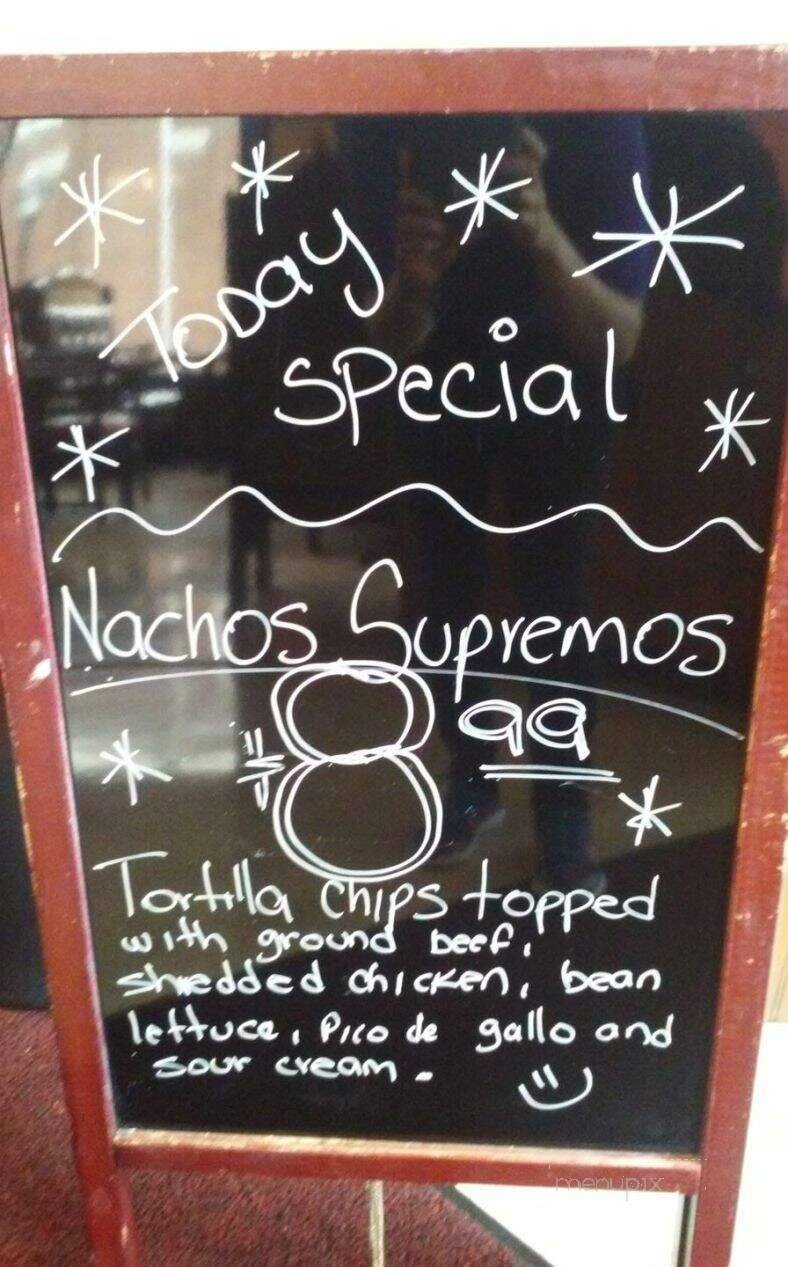 Today
special
Nachos Supremos
$8 99
Tortilla chips topped
with ground beef,
shredded chicken, bean
lettuce, Pico de gallo and
sour cream.
menupix